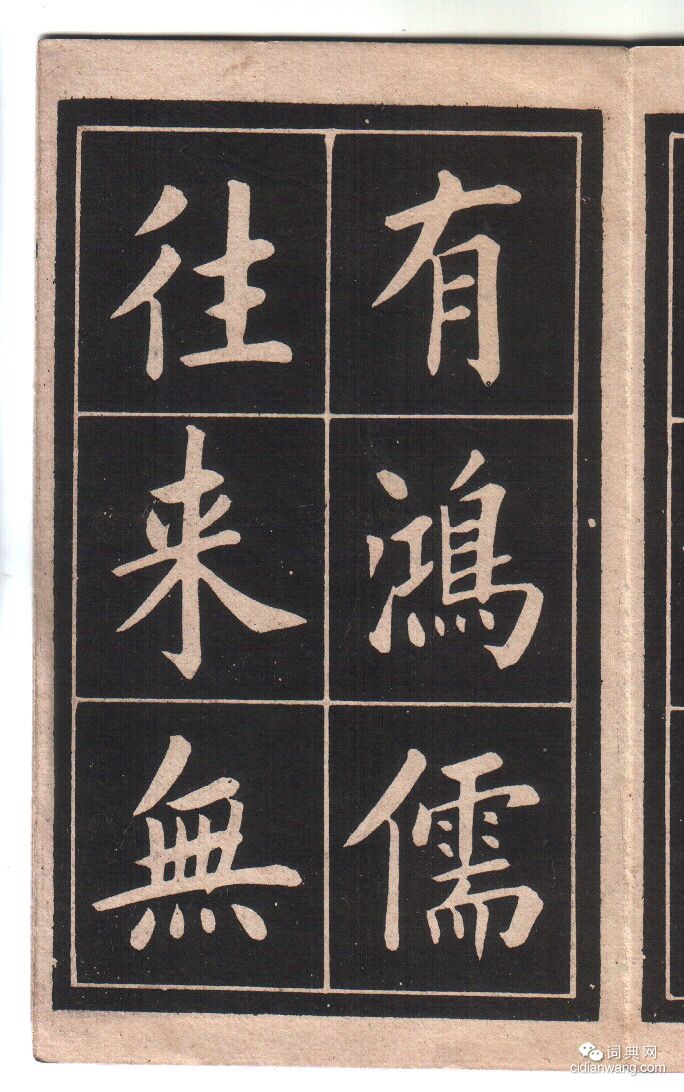 有鴻儒
往来無
词典网
cidianwang.com